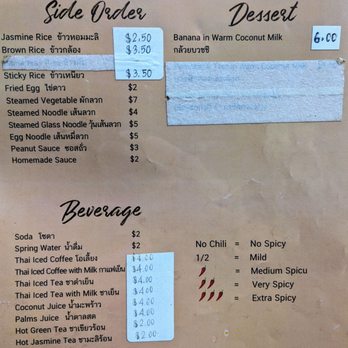 Side Order
Jasmine Rice ข้าวหอมมะลิ $2.50
Brown Rice ข้าวกล้อง $3.50
Sticky Rice ข้าวเหนียว $3.50
Fried Egg ไข่ดาว $2
Steamed Vegetable ผักลวก $7
Steamed Noodle เส้นลวก $4
Steamed Glass Noodle วุ้นเส้นลวก $5
Egg Noodle เส้นหมี่ลวก $5
Peanut Sauce ซอสถั่ว $3
Homemade Sauce $2
Dessert
Banana in Warm Coconut Milk 6.00
กล้วยบวชชี
Beverage
Soda โซดา $2
Spring Water น้ำดื่ม $2
Thai Iced Coffee โอเลี้ยง $4.00
Thai Iced Coffee with Milk กาแฟเย็น $4.00
Thai Iced Tea ชาดำเย็น $4.00
Thai Iced Tea with Milk ชาเย็น $4.00
Coconut Juice น้ำมะพร้าว $4.00
Palms Juice น้ำตาลสด $4.00
Hot Green Tea ชาเขียวร้อน $2.00
Hot Jasmine Tea ชามะลิร้อน $2.00
No Chili = No Spicy
1/2 = Mild
= Medium Spicu
= Very Spicy
= Extra Spicy